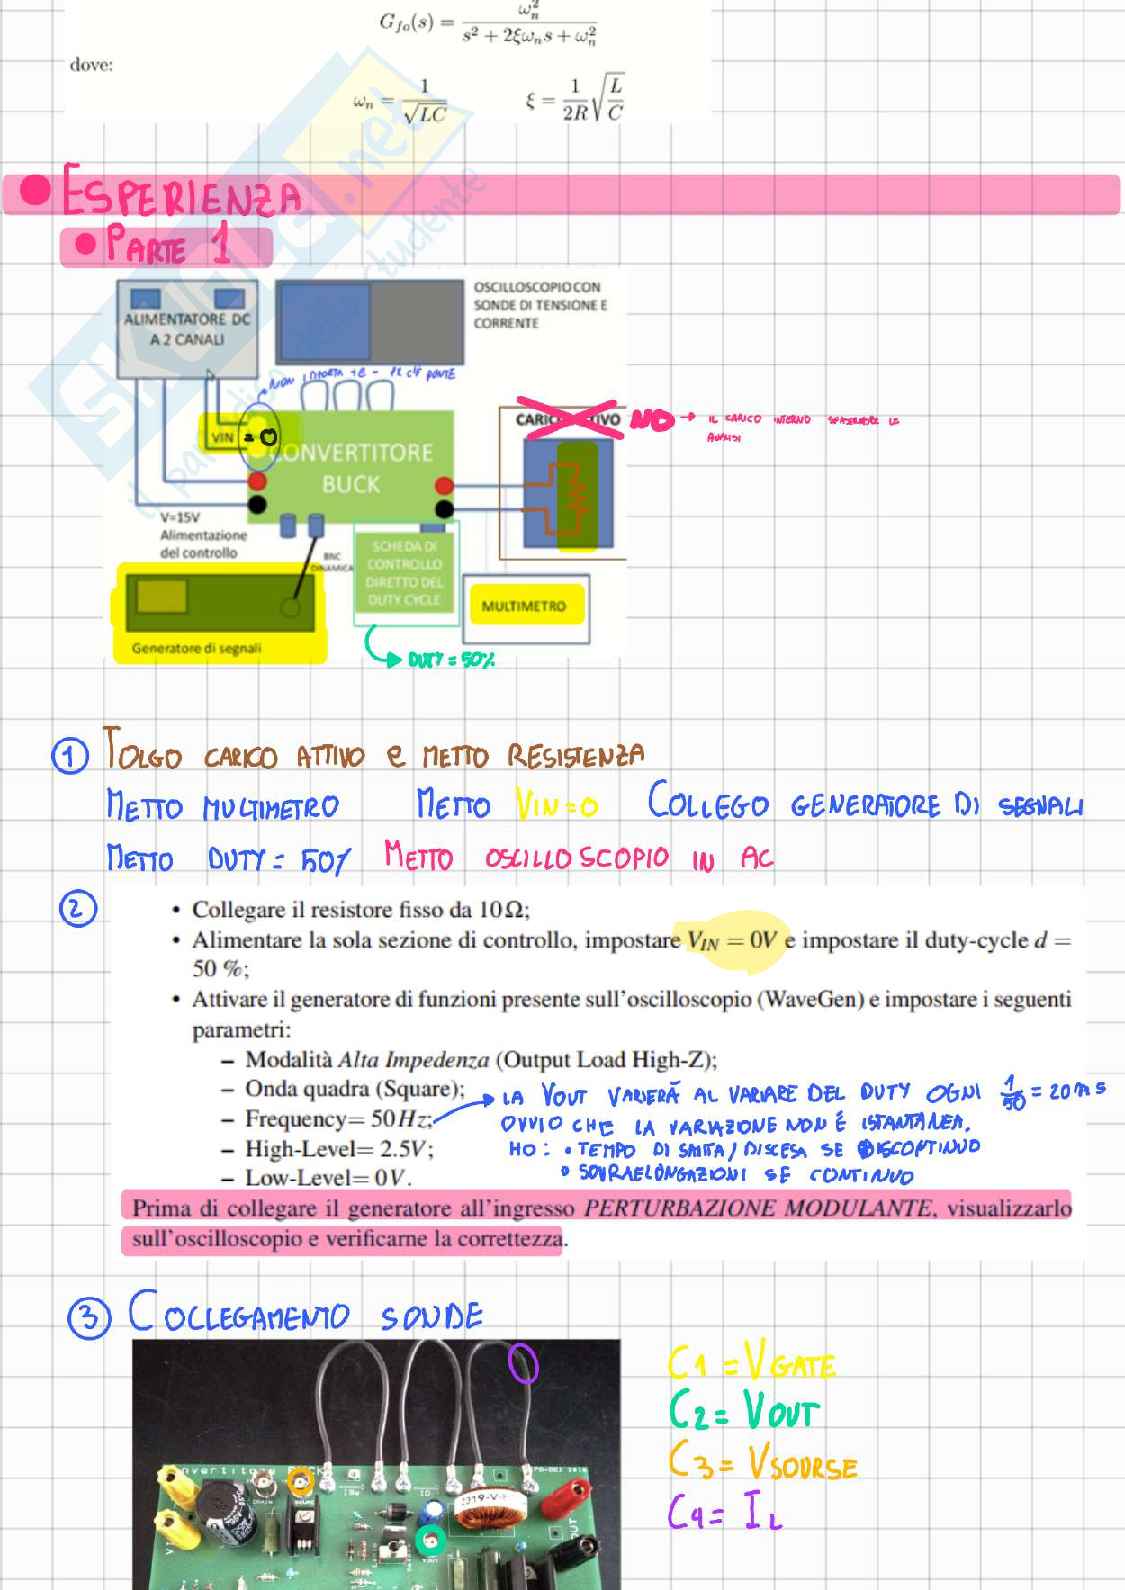 G_fo(s) = ω_n² / (s² + 2ξω_n s + ω_n²)
dove:
ω_n = 1/√(LC)    ξ = 1/(2R) √(L/C)
• ESPERIENZA
• PARTE 1
ALIMENTATORE DC
A 2 CANALI
OSCILLOSCOPIO CON
SONDE DI TENSIONE E
CORRENTE
NON IMPORTA + E - C'È PONTE
VIN = 0
CONVERTITORE
BUCK
NO → IL CARICO INTERNO
V=15V
Alimentazione
del controllo
BNC
DINAMICA
SCHEDA DI
CONTROLLO
DIRETTO DEL
DUTY CYCLE
MULTIMETRO
Generatore di segnali
DUTY = 50%
1 TOLGO CARICO ATTIVO e METTO RESISTENZA
METTO MULTIMETRO METTO VIN=0 COLLEGO GENERATORE DI SEGNALI
METTO DUTY = 50% METTO OSCILLOSCOPIO IN AC
2
• Collegare il resistore fisso da 10Ω;
• Alimentare la sola sezione di controllo, impostare V_IN = 0V e impostare il duty-cycle d =
50 %;
• Attivare il generatore di funzioni presente sull'oscilloscopio (WaveGen) e impostare i seguenti
parametri:
– Modalità Alta Impedenza (Output Load High-Z);
– Onda quadra (Square);
– Frequency= 50Hz;
– High-Level= 2.5V;
– Low-Level= 0V.
LA VOUT VARIERÀ AL VARIARE DEL DUTY OGNI 1/50 = 20ms
OVVIO CHE LA VARIAZIONE NON È ISTANTANEA.
HO: • TEMPO DI SALITA/DISCESA SE DISCONTINUO
• SOVRAELONGAZIONI SE CONTINUO
Prima di collegare il generatore all'ingresso PERTURBAZIONE MODULANTE, visualizzarlo
sull'oscilloscopio e verificarne la correttezza.
3 COLLEGAMENTO SONDE
C1 = VGATE
C2 = VOUT
C3 = VSOURSE
C4 = IL
SKUOLA.net
il paradiso dello studente